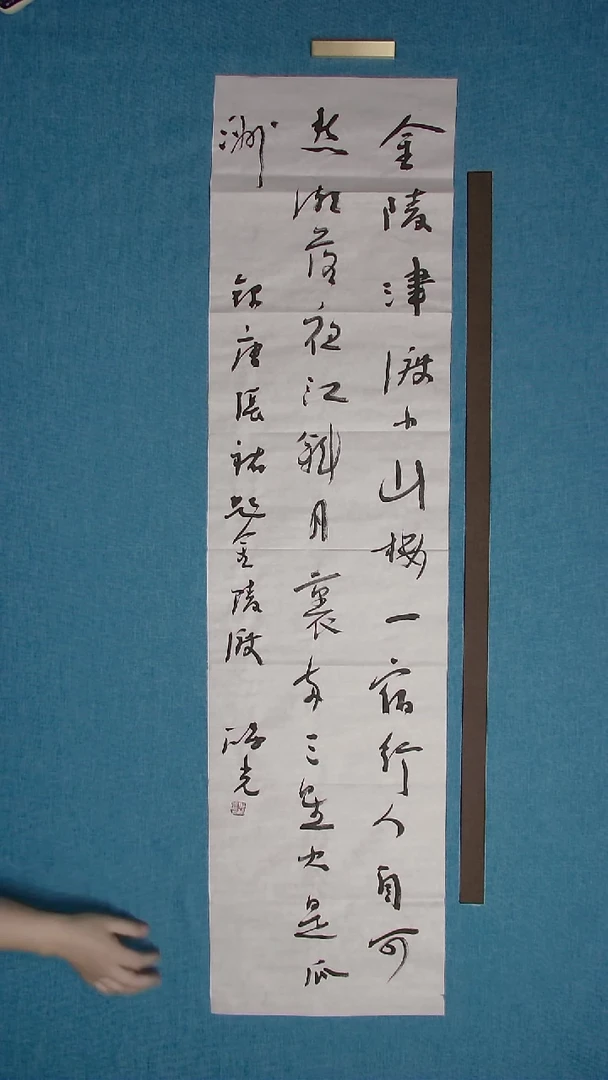 金陵津渡小山楼一宿行人自可
愁潮落夜江斜月裏两三星火是瓜
洲
錄唐張祜题金陵渡 光